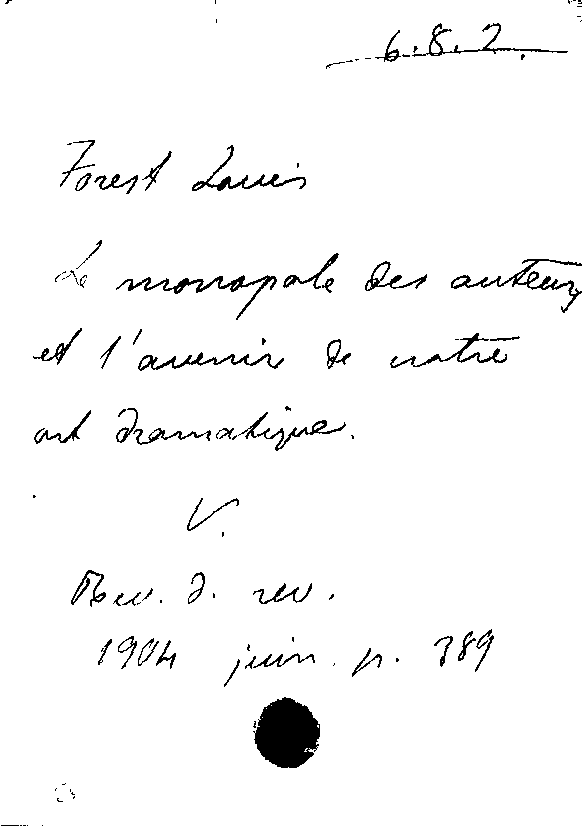 6.8.2.
Forest Louis
Le monopole des auteurs
et l'avenir de notre
art dramatique.
V.
Rev. d. rev.
1904 juin. p. 389